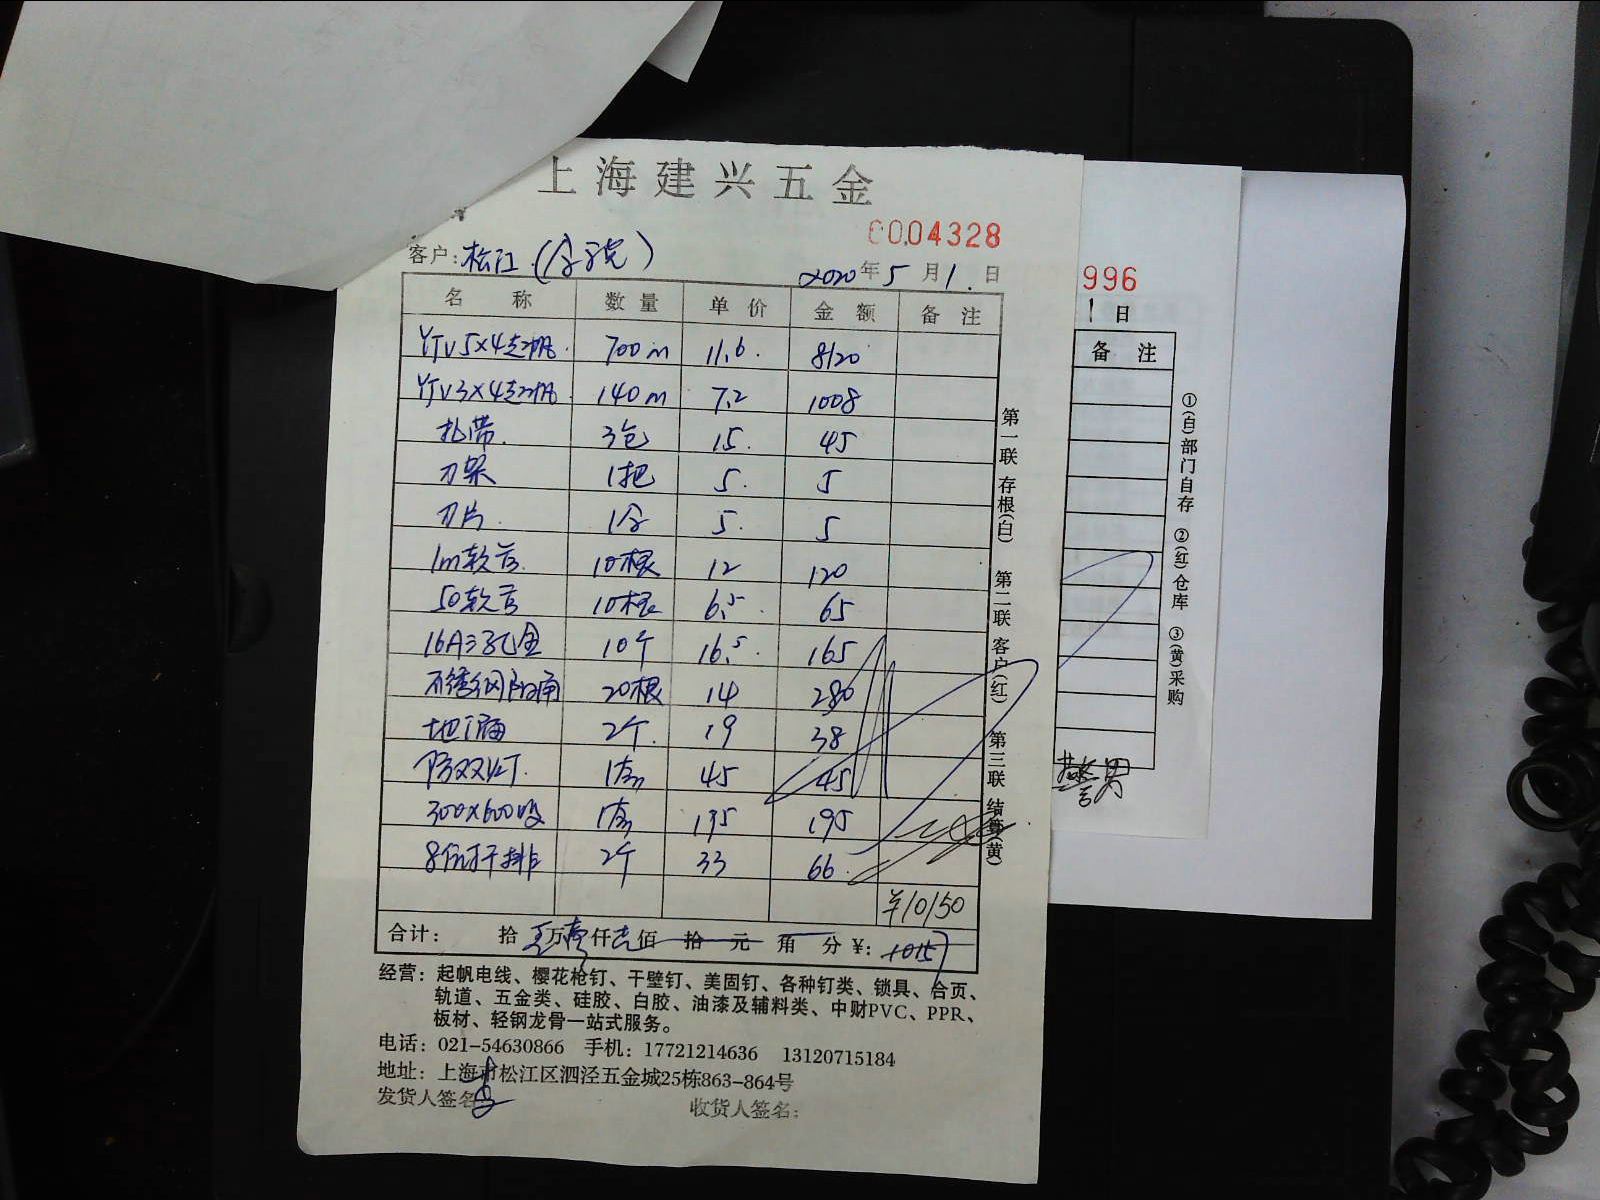 上海建兴五金
0004328
客户: 松江
2020年5月1日
名称 数量 单价 金额 备注
YJV5×4起帆 700m 11.6 8120
YJV3×4起帆 140m 7.2 1008
扎带 3包 15 45
刀架 1把 5 5
刀片 1盒 5 5
1m软管 10根 12 120
50软管 10根 6.5 65
16A三孔 10个 16.5 165
不锈钢 20根 14 280
地漏 2个 19 38
1套 45 45
300×600 1套 195
8位 2个 33 66
¥10150
合计: 拾 万 仟 佰 拾 元 角 分 ¥:
经营: 起帆电线、樱花枪钉、干壁钉、美固钉、各种钉类、锁具、合页、
轨道、五金类、硅胶、白胶、油漆及辅料类、中财PVC、PPR、
板材、轻钢龙骨一站式服务。
电话: 021-54630866 手机: 17721214636 13120715184
地址: 上海市松江区泗泾五金城25栋863-864号
发货人签名: 收货人签名:
第一联 存根(白) 第二联 客户(红) 第三联 结算(黄)
996
1日
备注
①(白)部门自存 ②(红)仓库 ③(黄)采购